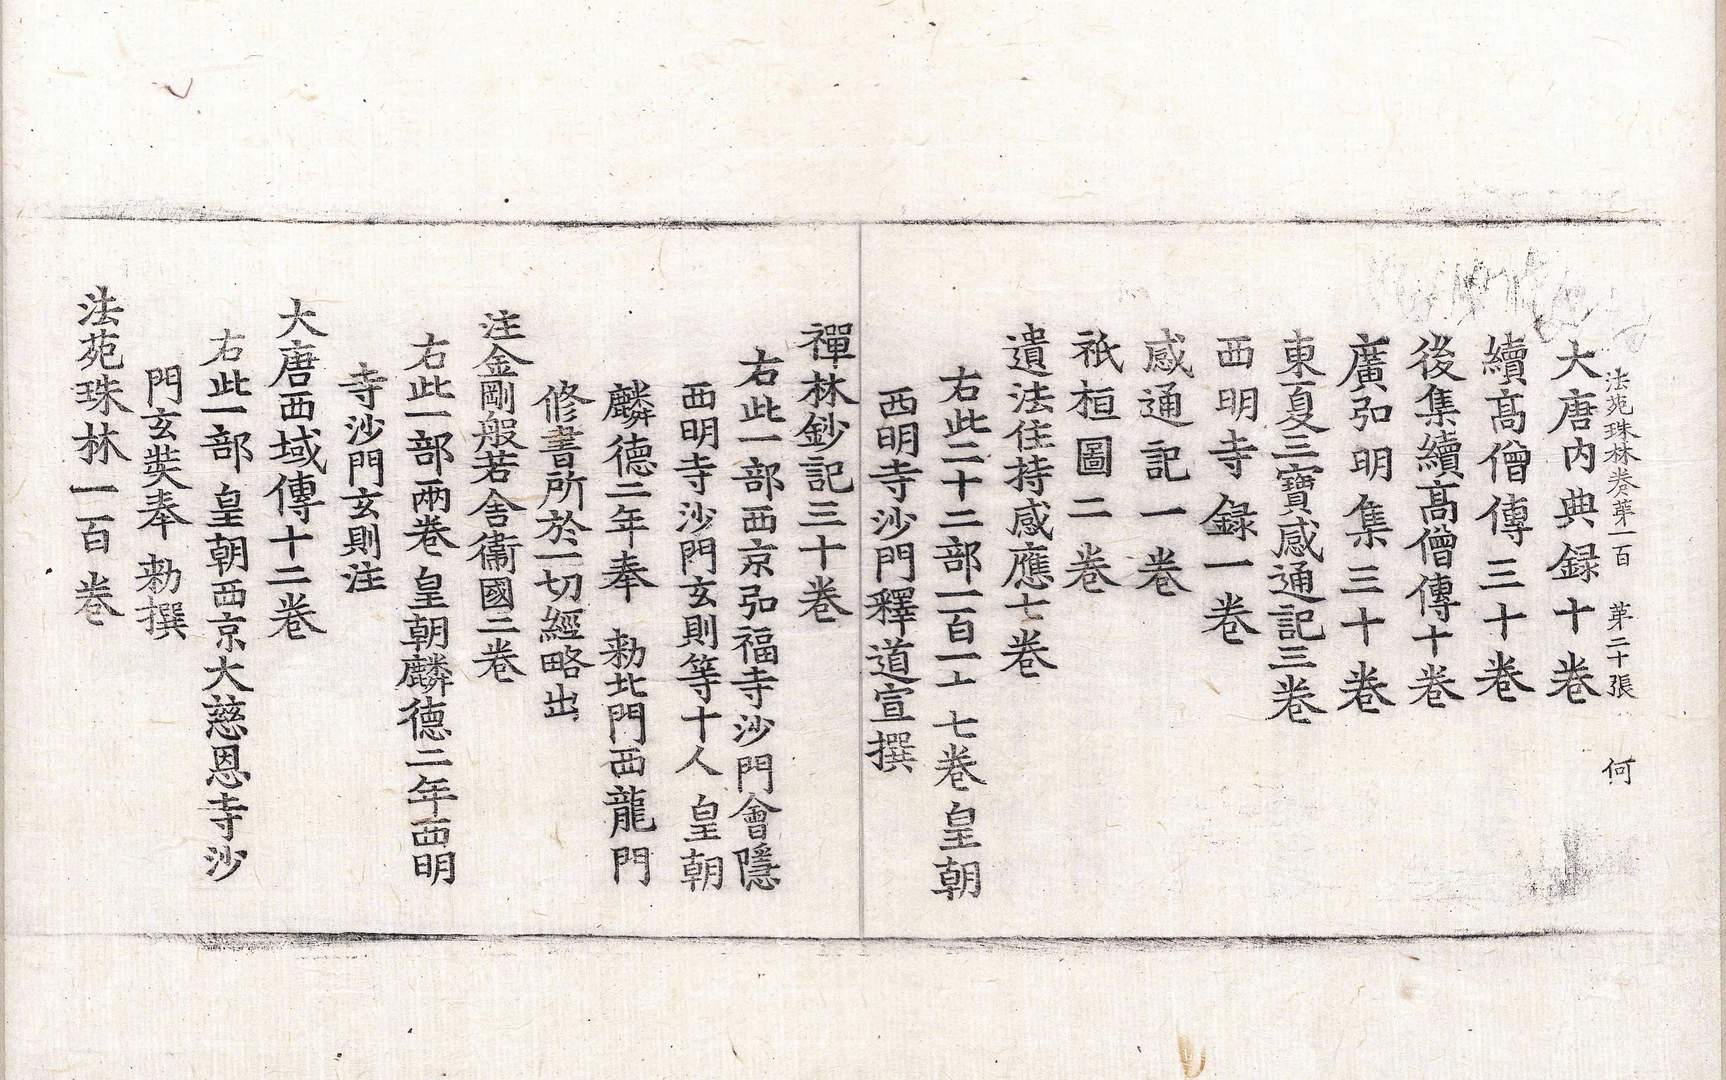 法苑珠林卷第一百 第二十張 何
大唐内典録十卷
續髙僧傳三十卷
後集續髙僧傳十卷
廣弘明集三十卷
東夏三寶感通記三卷
西明寺録一卷
感通記一卷
祇桓圖二卷
遺法住持感應七卷
右此二十二部一百一十七卷皇朝
西明寺沙門釋道宣撰
禪林鈔記三十卷
右此一部西京弘福寺沙門會隱
西明寺沙門玄則等十人皇朝
麟德二年奉 勑北門西龍門
修書所於一切經略出
注金剛般若舍衞國二卷
右此一部兩卷皇朝麟德二年西明
寺沙門玄則注
大唐西域傳十二卷
右此一部 皇朝西京大慈恩寺沙
門玄奘奉 勑撰
法苑珠林一百卷